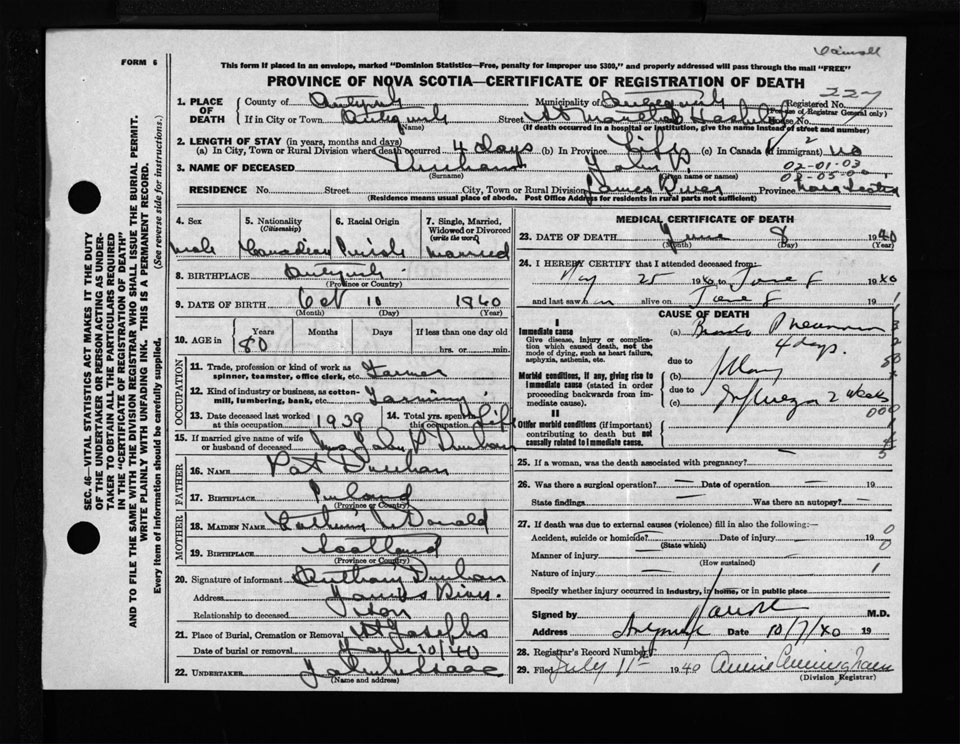 FORM 6
This form if placed in an envelope, marked "Dominion Statistics—Free, penalty for improper use $300," and properly addressed will pass through the mail "FREE"
PROVINCE OF NOVA SCOTIA—CERTIFICATE OF REGISTRATION OF DEATH
227
1. PLACE OF DEATH County of Municipality of Registered No. (For use of Registrar General only)
If in City or Town (Name) Street St Martha's House No.
(If death occurred in a hospital or institution, give the name instead of street and number)
2. LENGTH OF STAY (in years, months and days)
(a) In City, Town or Rural Division where death occurred 4 days (b) In Province Life (c) In Canada (if immigrant) no
3. NAME OF DECEASED (Surname) John P. (Given name or names)
02-01-03
RESIDENCE No. Street City, Town or Rural Division James River Province Nova Scotia
(Residence means usual place of abode. Post Office Address for residents in rural parts not sufficient)
4. Sex 5. Nationality (Citizenship) 6. Racial Origin 7. Single, Married, Widowed or Divorced (write the word)
Male Canadian Irish Married
8. BIRTHPLACE (Province or Country)
9. DATE OF BIRTH Oct 10 1860
(Month) (Day) (Year)
10. AGE in Years Months Days If less than one day old
80 hrs. or min.
OCCUPATION
11. Trade, profession or kind of work as spinner, teamster, office clerk, etc. Farmer
12. Kind of industry or business, as cotton-mill, lumbering, bank, etc. Farming
13. Date deceased last worked at this occupation 1939 14. Total yrs. spent in this occupation Life
15. If married give name of wife or husband of deceased Mrs John P.
FATHER
16. NAME Pat
17. BIRTHPLACE Ireland
(Province or Country)
MOTHER
18. MAIDEN NAME McDonald
19. BIRTHPLACE Scotland
(Province or Country)
20. Signature of informant Anthony
Address James River
Relationship to deceased Son
21. Place of Burial, Cremation or Removal St Josephs
Date of burial or removal June 10/40
22. UNDERTAKER
(Name and address)
MEDICAL CERTIFICATE OF DEATH
23. DATE OF DEATH June 8 1940
(Month) (Day) (Year)
24. I HEREBY CERTIFY that I attended deceased from
May 25 1940 to June 8 1940
and last saw him alive on June 8 19
CAUSE OF DEATH
I
Immediate cause (a) Broncho Pneumonia
Give disease, injury or complication which caused death, not the mode of dying, such as heart failure, asphyxia, asthenia, etc.
4 days.
due to
Morbid conditions, if any, giving rise to immediate cause (stated in order proceeding backwards from immediate cause). (b)
due to
(c) Influenza 2 weeks
II
Other morbid conditions (if important) contributing to death but not causally related to immediate cause.
25. If a woman, was the death associated with pregnancy?
26. Was there a surgical operation? — Date of operation — 19
State findings — Was there an autopsy? —
27. If death was due to external causes (violence) fill in also the following:—
Accident, suicide or homicide? — Date of injury — 19
(State which)
Manner of injury
(How sustained)
Nature of injury
Specify whether injury occurred in industry, in home, or in public place
Signed by M.D.
Address Date 10/7/40 19
28. Registrar's Record Number
29. Filed July 11th 1940 Annie Cunningham
(Division Registrar)
SEC. 46—VITAL STATISTICS ACT MAKES IT THE DUTY
OF THE UNDERTAKER OR PERSON ACTING AS UNDER-
TAKER TO OBTAIN ALL THE PARTICULARS REQUIRED
IN THE "CERTIFICATE OF REGISTRATION OF DEATH"
AND TO FILE THE SAME WITH THE DIVISION REGISTRAR WHO SHALL ISSUE THE BURIAL PERMIT.
WRITE PLAINLY WITH UNFADING INK. THIS IS A PERMANENT RECORD.
Every item of information should be carefully supplied. (See reverse side for instructions.)